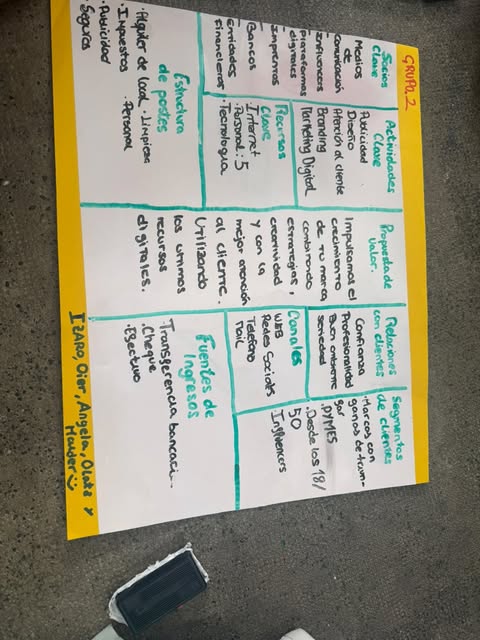 GRUPO 2
Socios
Clave
Medios
de
comunicación
Influencers
Plataformas
digitales
Imprentas
Bancos
Entidades
financieras
Actividades
Clave
Publicidad
Diseño
Atención al cliente
Branding
Marketing Digital
Recursos
Clave
Internet
Personal: 5
Tecnología
Propuesta de
Valor.
Impulsamos el
crecimiento
de tu marca
combinando
estrategias,
creatividad
y con la
mejor atención
al cliente.
Utilizando
los últimos
recursos
digitales.
Relaciones
con clientes
Confianza
Profesionalidad
Buen ambiente
Canales
WEB
Redes Sociales
Teléfono
Mail
Segmentos
de clientes
·Marcas con
ganas de
·PYMES
·Desde los 18/
50
Influencers
Estructura
de costes
·Alquiler de local ·Limpieza
·Impuestos ·Personal
·Publicidad
Seguros
Fuentes de
Ingresos
·Transferencia bancaria.
·Cheque
·Efectivo
IZARO, Oier, Angela, Olatz y
Haider